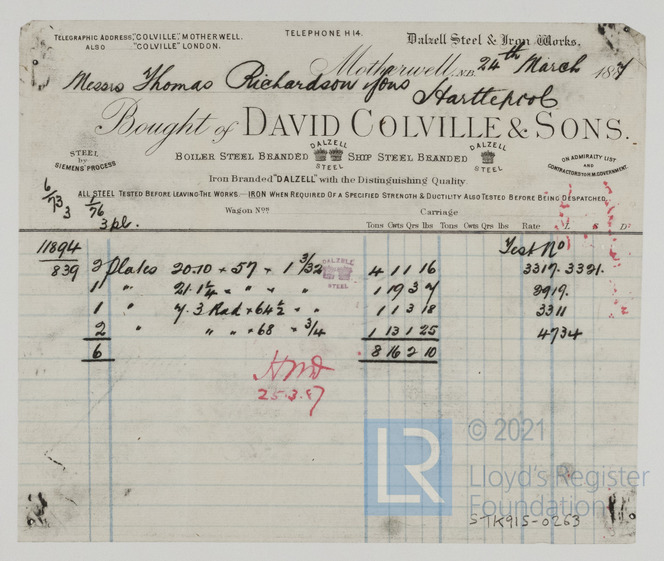 TELEGRAPHIC ADDRESS, "COLVILLE", MOTHERWELL.
ALSO "COLVILLE" LONDON.
TELEPHONE No 14.
Dalzell Steel & Iron Works,
Motherwell, N.B. 24th March 1887
Messrs Thomas Richardson & Sons
Hartlepool
Bought of DAVID COLVILLE & SONS.
STEEL by SIEMENS' PROCESS
BOILER STEEL BRANDED DALZELL STEEL SHIP STEEL BRANDED DALZELL STEEL
ON ADMIRALTY LIST AND CONTRACTORS TO H.M. GOVERNMENT.
Iron Branded "DALZELL" with the Distinguishing Quality.
ALL STEEL TESTED BEFORE LEAVING THE WORKS.—IRON WHEN REQUIRED OF A SPECIFIED STRENGTH & DUCTILITY ALSO TESTED BEFORE BEING DESPATCHED.
6/73 3 1/76
3 pl.
Wagon Nos Carriage
Tons Cwts Qrs lbs Tons Cwts Qrs lbs Rate £ s D
11894 Test No
839 2 Plates 20.10 × 57 × 1 3/32 DALZELL STEEL 4 11 1 16 3317. 3321.
1 " 21.1¼ × " × " 1 19 3 7 2919.
1 " 7.3 Rad × 64½ × " 1 1 3 18 3311
2 " " " × 68 × 3/4 1 13 1 25 4734
6 8 16 2 10
25.3.87
LR
© 2021
Lloyd's Register
Foundation
STK915-0263